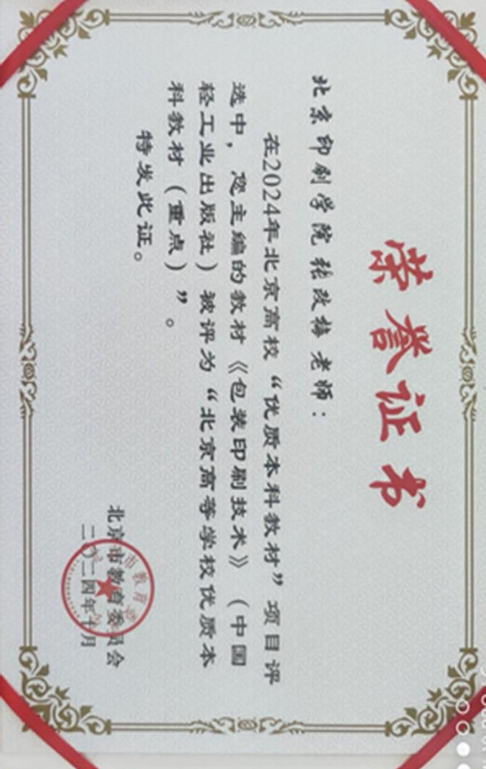 荣誉证书
北京印刷学院 张改梅 老师：
在2024年北京高校“优质本科教材”项目评
选中，您主编的教材《包装印刷技术》（中国
轻工业出版社）被评为“北京高等学校优质本
科教材（重点）”。
特发此证。
北京市教育委员会
二〇二四年十月